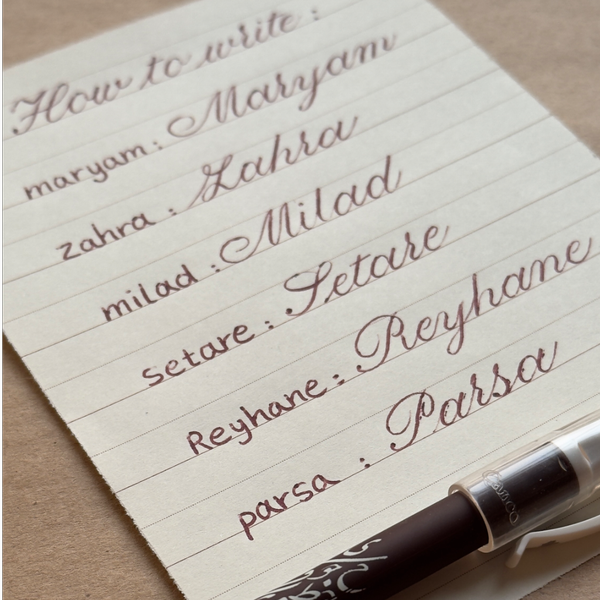 How to write :
maryam: Maryam
zahra : Zahra
milad : Milad
setare : Setare
Reyhane : Reyhane
parsa : Parsa